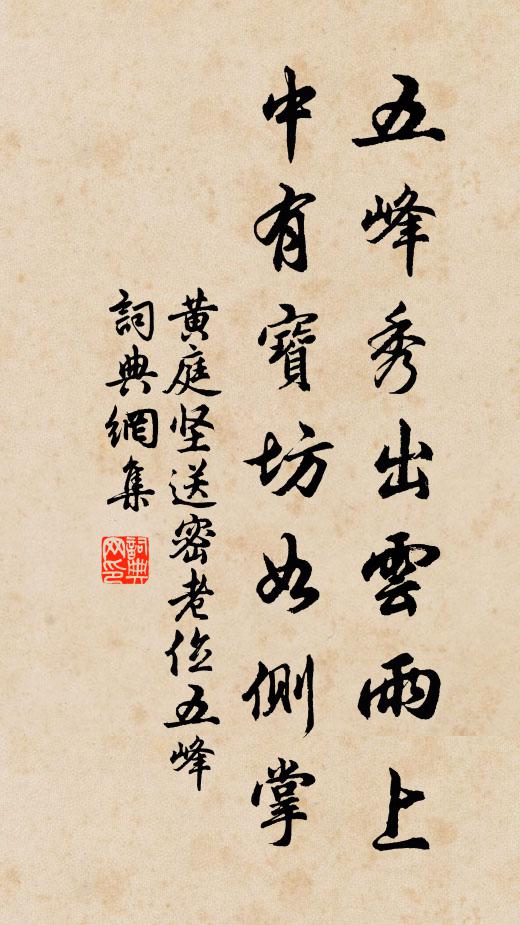 五峰秀出雲雨上
中有寶坊如側掌
黃庭坚送密老住五峰
詞典網集
詞典
网印